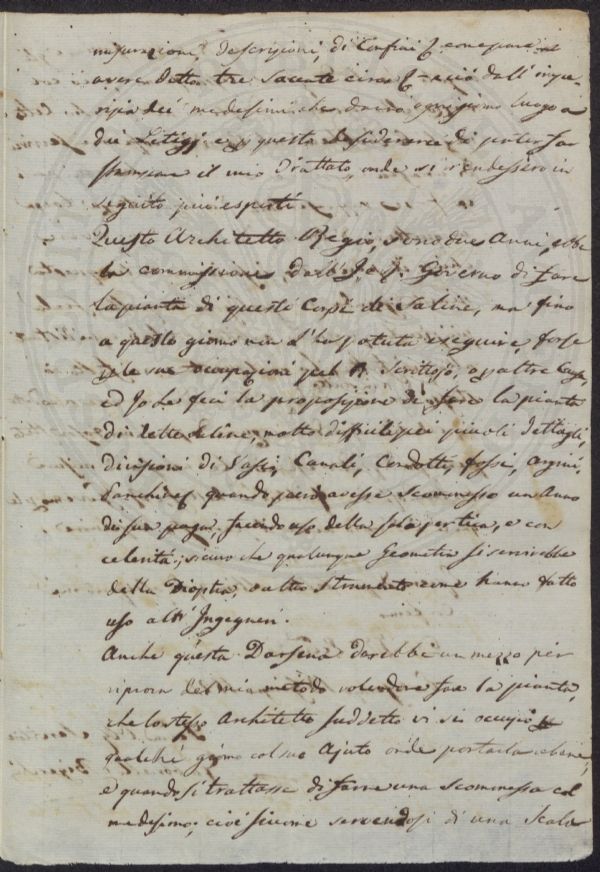 misurazioni, descrizioni, di Confini
avere detto tre sacente circo e ciò dall'impe-
rizia dei medesimi che danno ogni giorno luogo a
dei Letigj, e questo desiderare di poter far
stampare il mio Trattato, onde si rendessero in
seguito più esperti.
Questo Architetto Regio, sono due Anni, ebbe
la commissione dall' I. e J. Governo di fare
la pianta di questi Corpi di Saline, ma fino
a questo giorno non l'ha potuta eseguire, forse
per le sue occupazioni pel R. Scrittojo, o per altre Cause,
ed Io le feci la proposizione di fare la pianta
di dette Saline, molto difficile pei piccoli dettagli,
divisioni di Vasi, Canali, Condotti, fossi, argini,
Panchine quando però avesse scommesso un Anno
di sua paga, facendo uso della sola pertica, e con
celerità; sicuro che qualunque Geometra si servirebbe
della Dioptra, o altro strumento come hanno fatto
uso altri Ingegneri.
Anche questa Darsena darebbe un mezzo per
riprova del mio metodo volendone fare la pianta,
che lo stesso Architetto suddetto vi si occupò
qualche giorno col suo Ajuto onde portarla a bene,
e quando si trattasse di farne una scommessa col
medesimo; cioè servendosi di una Scala